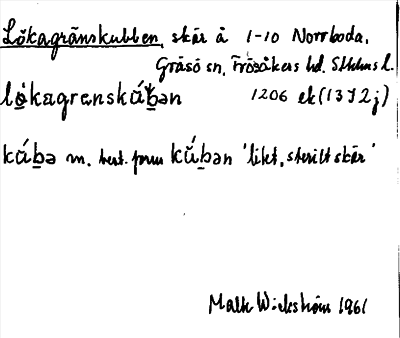 Lökagränskubben, skär å 1-10 Norrboda,
Gräsö sn, Frösåkers hd, Sthlms l.
lökagrenskúbən 1206 ek (13 I 2 j)
kúbə m. best. form kúbən 'litet, sterilt skär'
Malte Wickström 1961